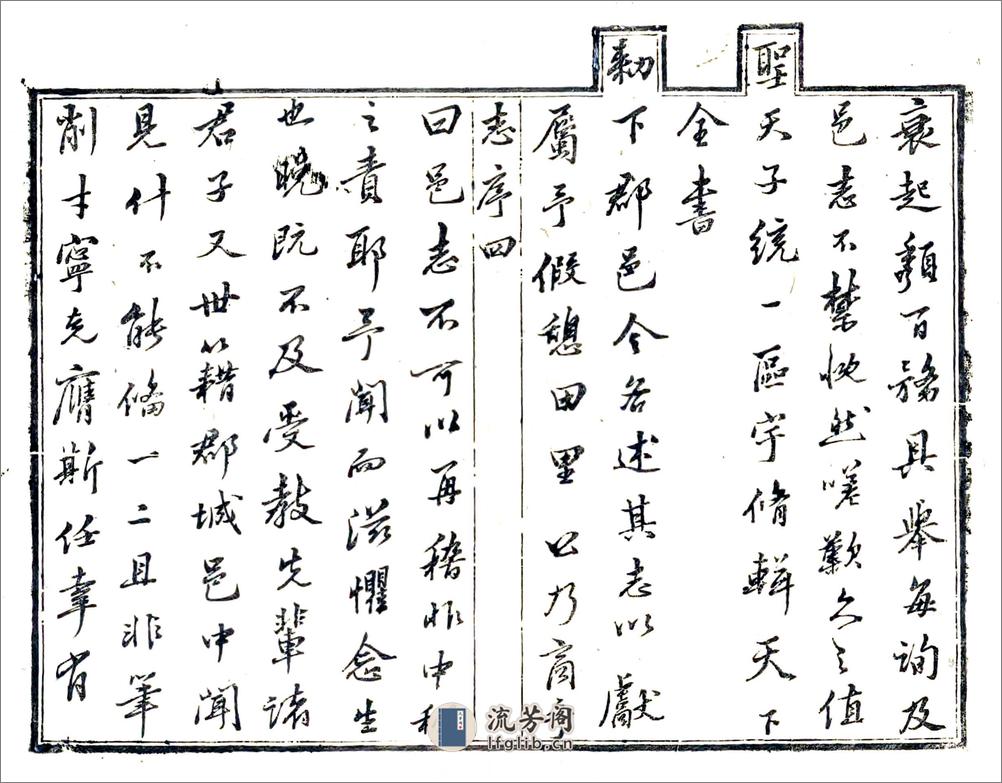 衰起頹百務具舉每詢及
邑志不禁怃然嗟歎久之值
聖天子統一區宇脩輯天下
全書
勅下郡邑令各述其志以獻
屬予假憩田里公乃商
志序 四
曰邑志不可以再稽非中秘
之責耶予聞而滋懼念生
也晚既不及受教先輩諸
君子又世以籍郡城邑中聞
見什不能脩一二且非筆
削才寧克膺斯任幸有
流芳阁
lfglib.cn